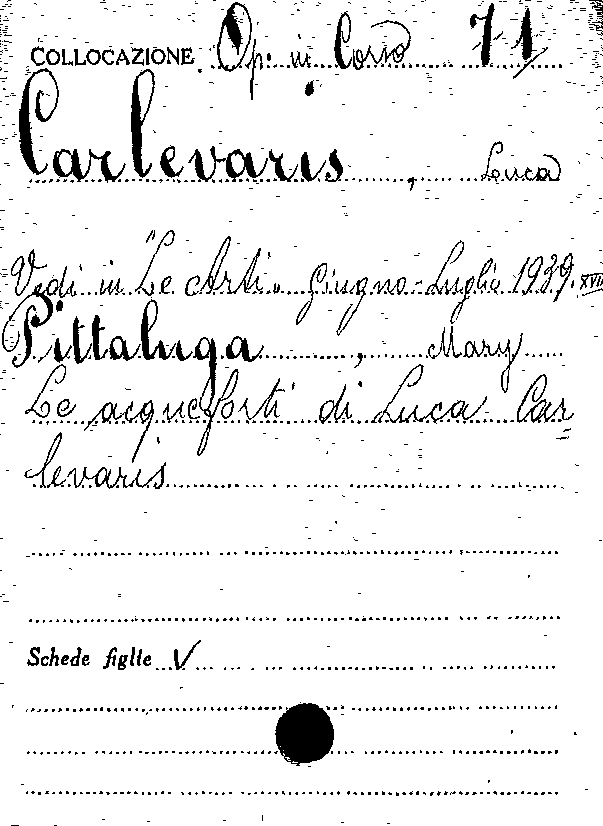 COLLOCAZIONE Op. in Corso 71
Carlevaris, Luca
Vedi in "Le Arti" Giugno-Luglio 1939. XVII
Pittaluga, Mary
Le acqueforti di Luca Car=
levaris
Schede figlie V